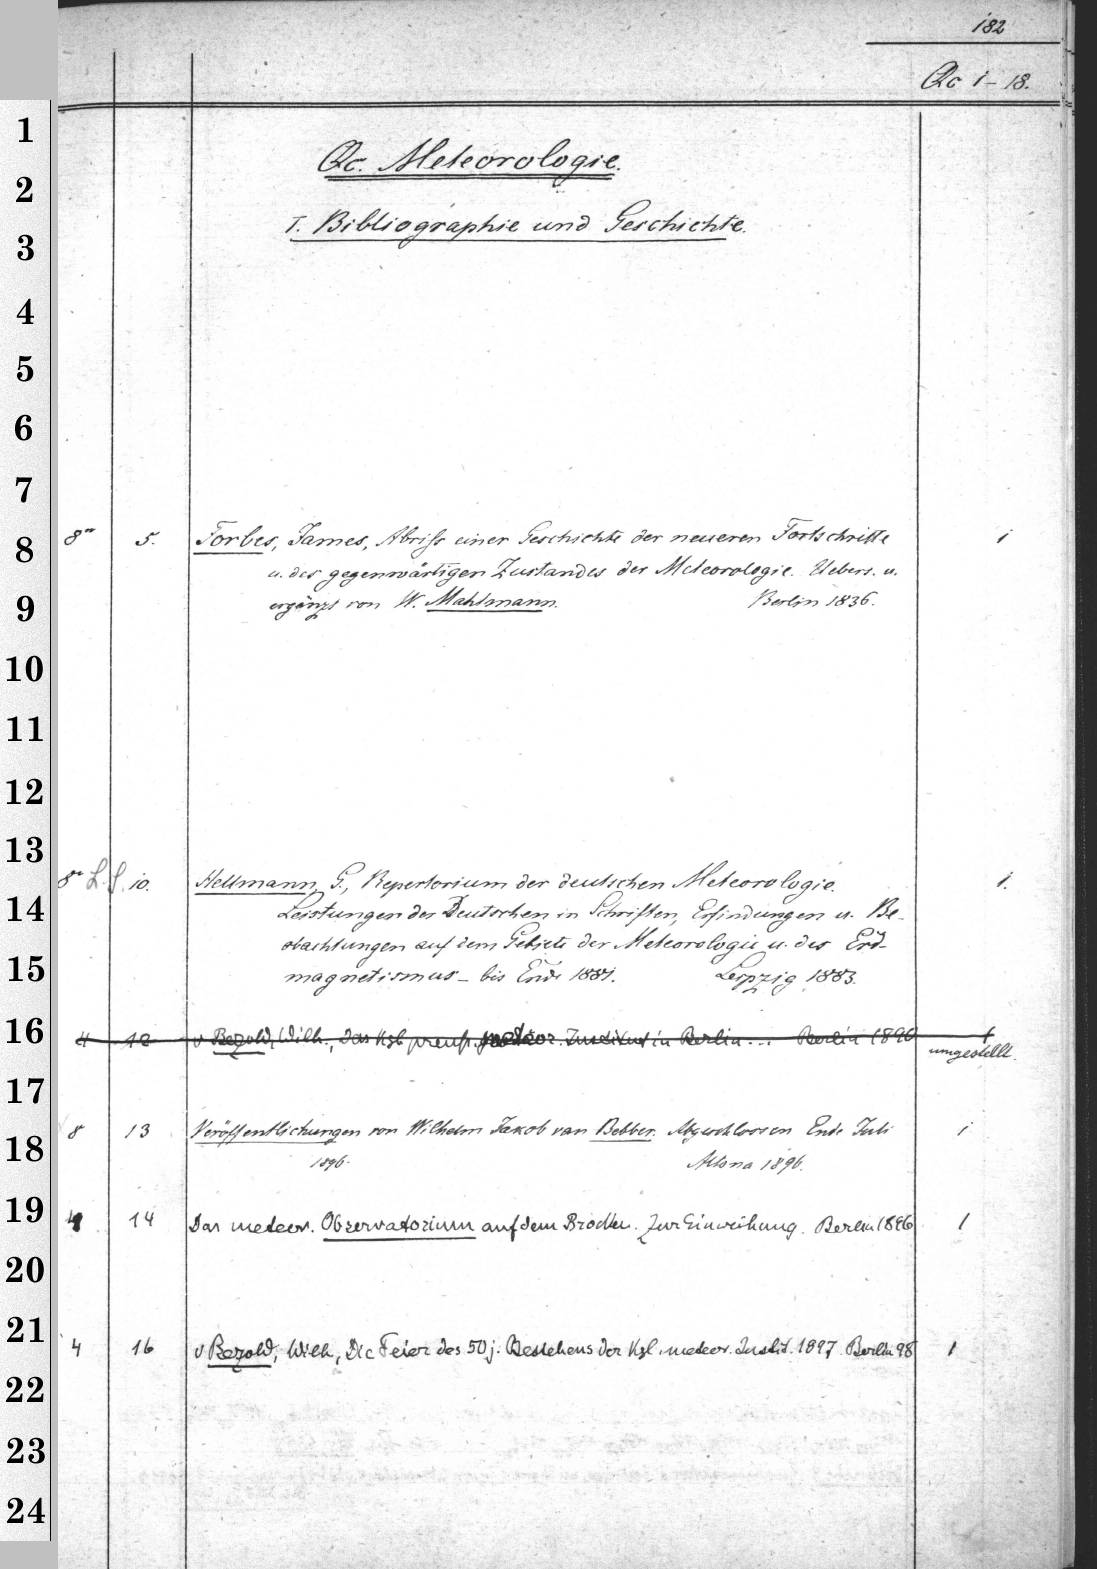 182
Qc 1-18.
Qc. Meteorologie.
I. Bibliographie und Geschichte.
8° 5. Forbes, James, Abriss einer Geschichte der neueren Fortschritte 1
u. des gegenwärtigen Zustandes der Meteorologie. Uebers. u.
ergänzt von W. Mahlmann. Berlin 1836.
8° L.S. 10. Hellmann, G., Repertorium der deutschen Meteorologie. 1.
Leistungen der Deutschen in Schriften, Erfindungen u. Be-
obachtungen auf dem Gebiete der Meteorologie u. des Erd-
magnetismus - bis Ende 1881. Leipzig 1883.
4 12 v Bezold, Wilh., Das Kgl. preuß. meteor. Institut in Berlin... Berlin 1890 1
umgestellt.
8 13 Veröffentlichungen von Wilhelm Jakob van Bebber. Abgeschlossen Ende Juli 1
1896. Altona 1896.
4 14 Das meteor. Observatorium auf dem Brocken. Zur Einweihung. Berlin 1896 1
4 16 v Bezold, Wilh, Die Feier des 50 j. Bestehens der Kgl. meteor. Instit. 1897. Berlin 98 1
1
2
3
4
5
6
7
8
9
10
11
12
13
14
15
16
17
18
19
20
21
22
23
24